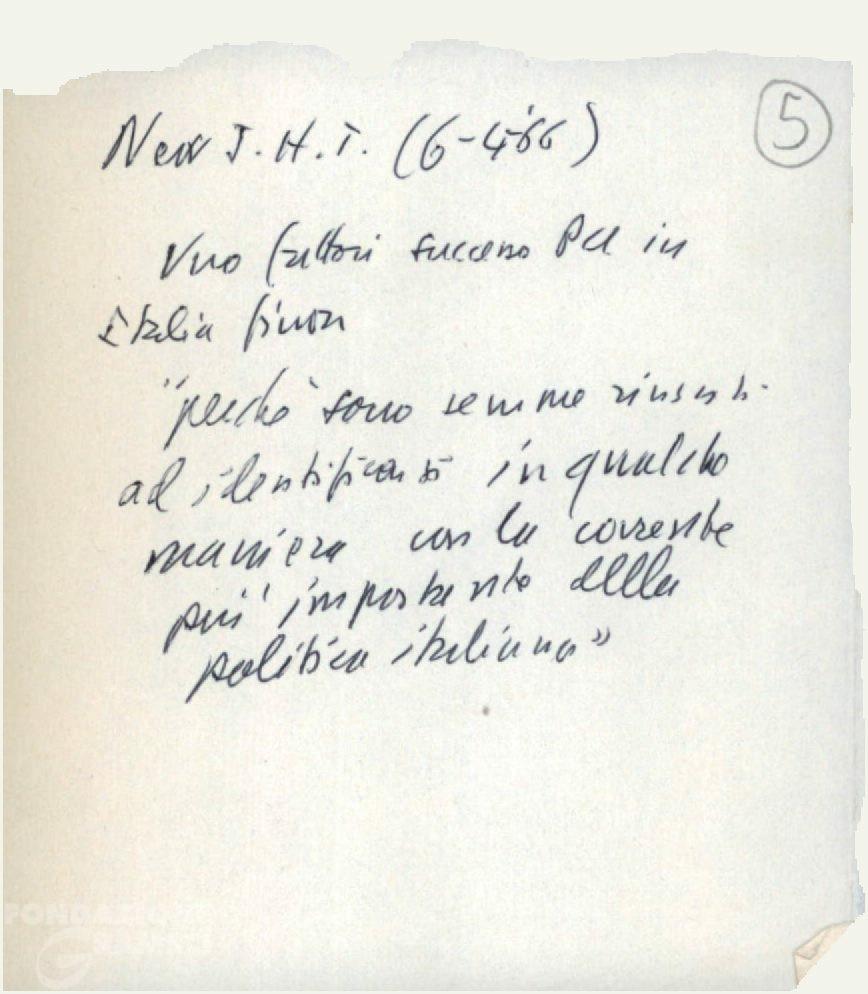 5
New J.H.T. (6-4-'66)
Uno fattori successo Pci in
Italia finora
"perché sono sempre riusciti
ad identificarsi in qualche
maniera con la corrente
più importante della
politica italiana"
FONDAZIONE
GRAMSCI